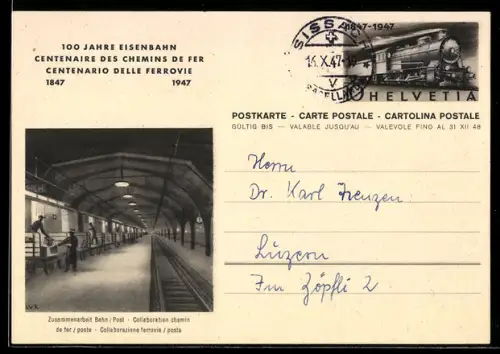 100 JAHRE EISENBAHN
CENTENAIRE DES CHEMINS DE FER
CENTENARIO DELLE FERROVIE
1847 1947
SISSACH
14.X.47
V
1847-1947
10 HELVETIA
POSTKARTE - CARTE POSTALE - CARTOLINA POSTALE
GÜLTIG BIS — VALABLE JUSQU'AU — VALEVOLE FINO AL 31 XII 48
Herrn
Dr. Karl
Luzern
Im Zöpfli 2
Zusammenarbeit Bahn / Post - Collaboration chemin
de fer / poste - Collaborazione ferrovia / posta